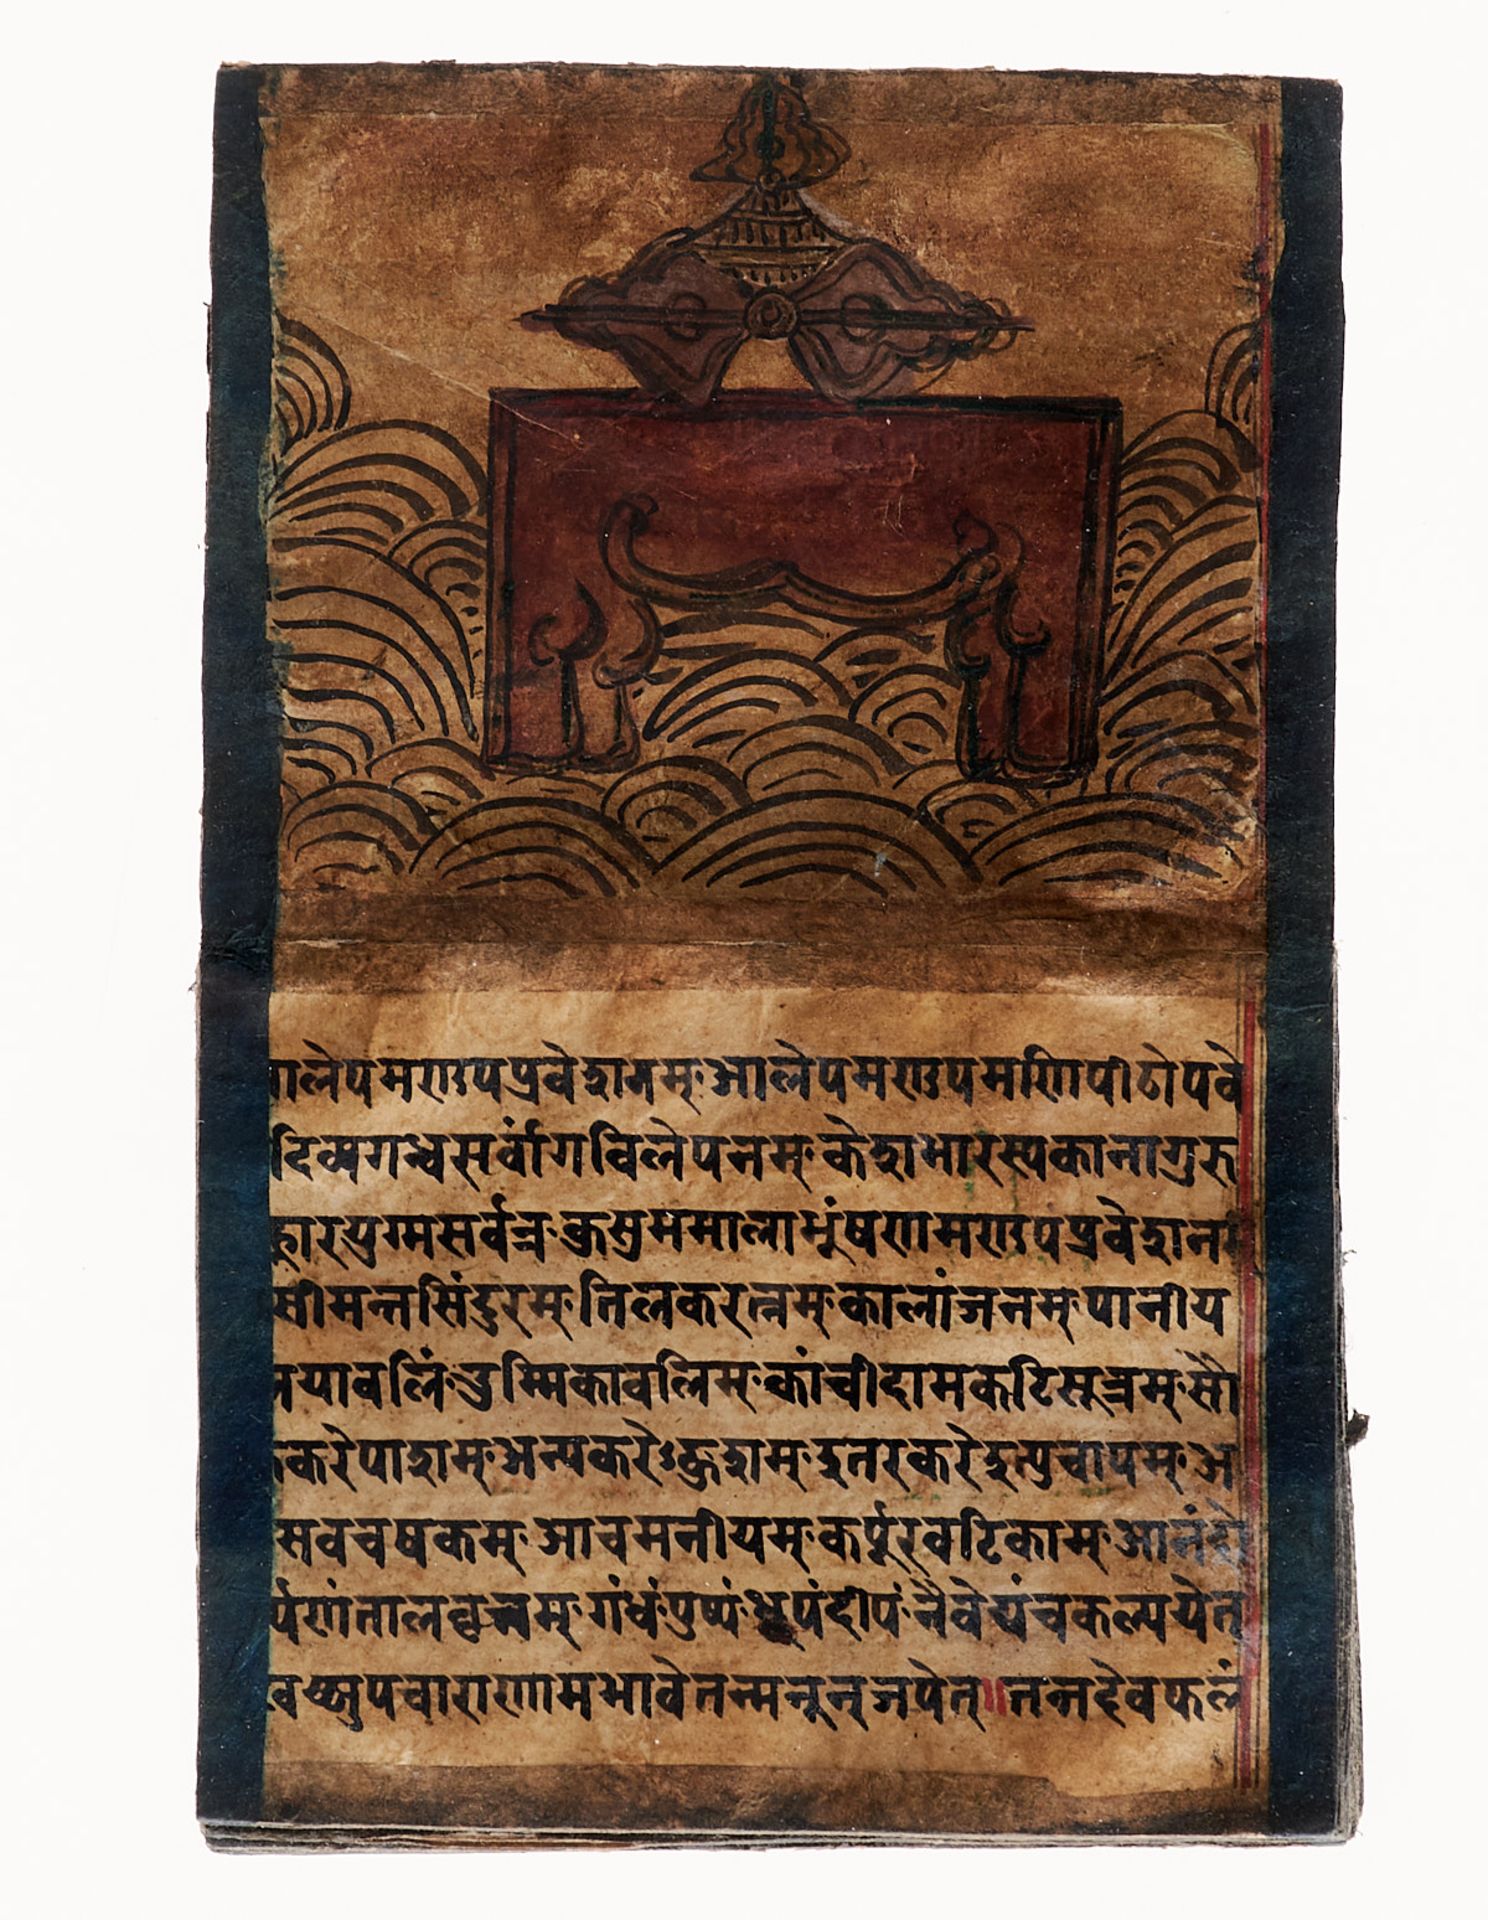 ालेपमण्डपप्रवेशनम्·आलेपमण्डपमणिपीठोपवे
दिव्यगन्धसर्वांगविलेपनम्·केशभारस्यकानागुरु
युग्मसर्वत्र·कुसुममालाभूंषणमण्डपप्रवेशन
सीमन्तसिंदुरम्·तिलकरत्नम्·कालांजनम्·पानीय
यावलिं·उम्मिकावलिम्·कांचीदामकटिसूत्रम्·सौ
करेपाशम्·अन्यकरेऽङ्कुशम्·इतरकरेइ चापम्·अ
सवचषकम्·आचमनीयम्·कर्पूरवटिकाम्·आनंदो
र्पणंतालवृन्तम्·गंधंपुष्पंधूपंदीपंनैवेद्यंचकल्पयेत्
उपचाराणामभावेतन्मनून्जपेत्॥तत्तदेवफलं